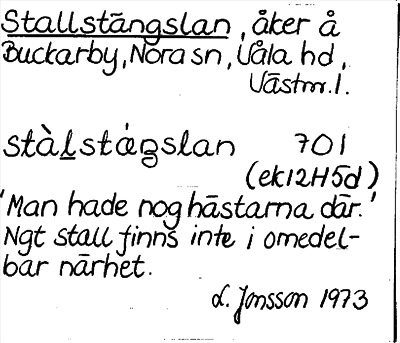 Stallstängslan, åker å
Buckarby, Nora sn, Våla hd,
Västm. l.
stàl̲stǽŋslan 701
(ek12H5d)
'Man hade nog hästarna där.'
Ngt stall finns inte i omedel-
bar närhet.
L. Jonsson 1973